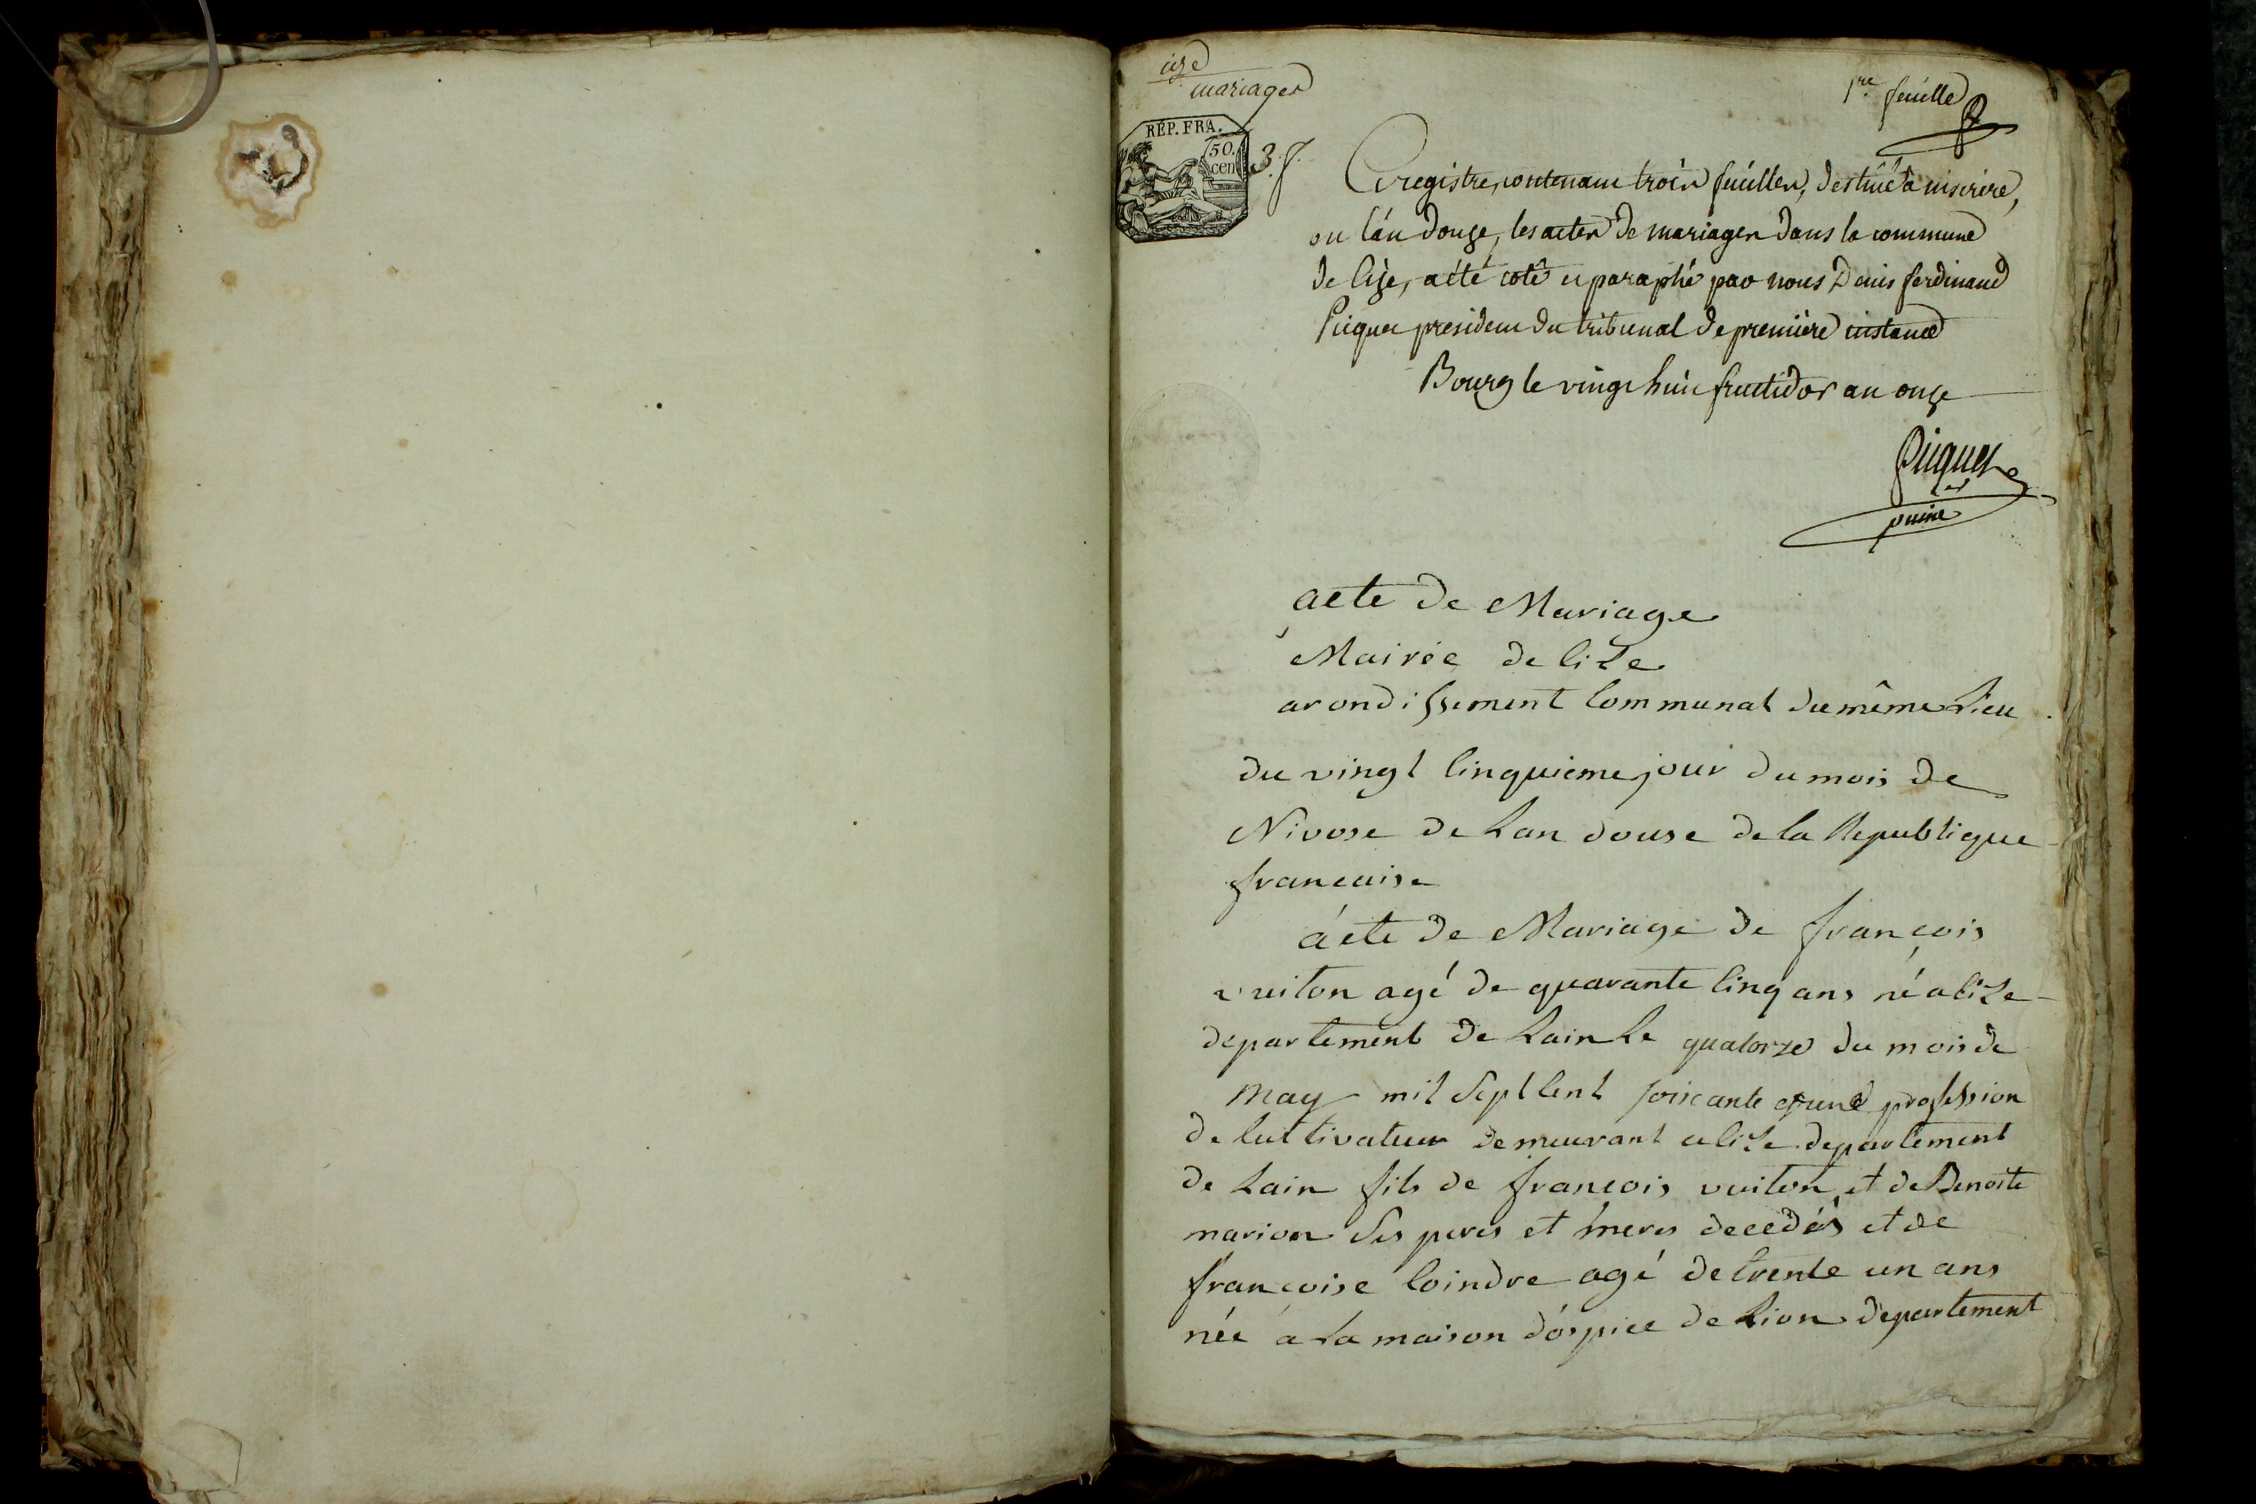 cize
mariages
1re feuille
RÉP. FRA.
50.
cen
3. f.
Ce registre, contenant trois feuilles, destiné a inscrire,
ou l'an douze, les actes de mariages dans la commune
de Cize, a été coté et paraphé par nous Denis ferdinand
Picquet president du tribunal de premiere instance
Bourg le vingt huit fructidor an onze
Picquet
puiné
acte de Mariage
Mairie de Cize
arondissement Communal du même Lieu
du vingt Cinquieme jour du mois de
Nivose de Lan douse de la Republique
francaise
acte de Mariage de françois
vuiton agé de quarante Cinq ans né a Cize
departement de Lain Le quatorze du mois de
may mil Sept Cent soixante profession
de Cultivateur demeurant a Cize departement
de Lain fils de francois vuiton et de Benoite
marion Ses peres et meres decedés et de
françoise Coindre agé de trente un ans
née a La maison d'ospice de Lion departement